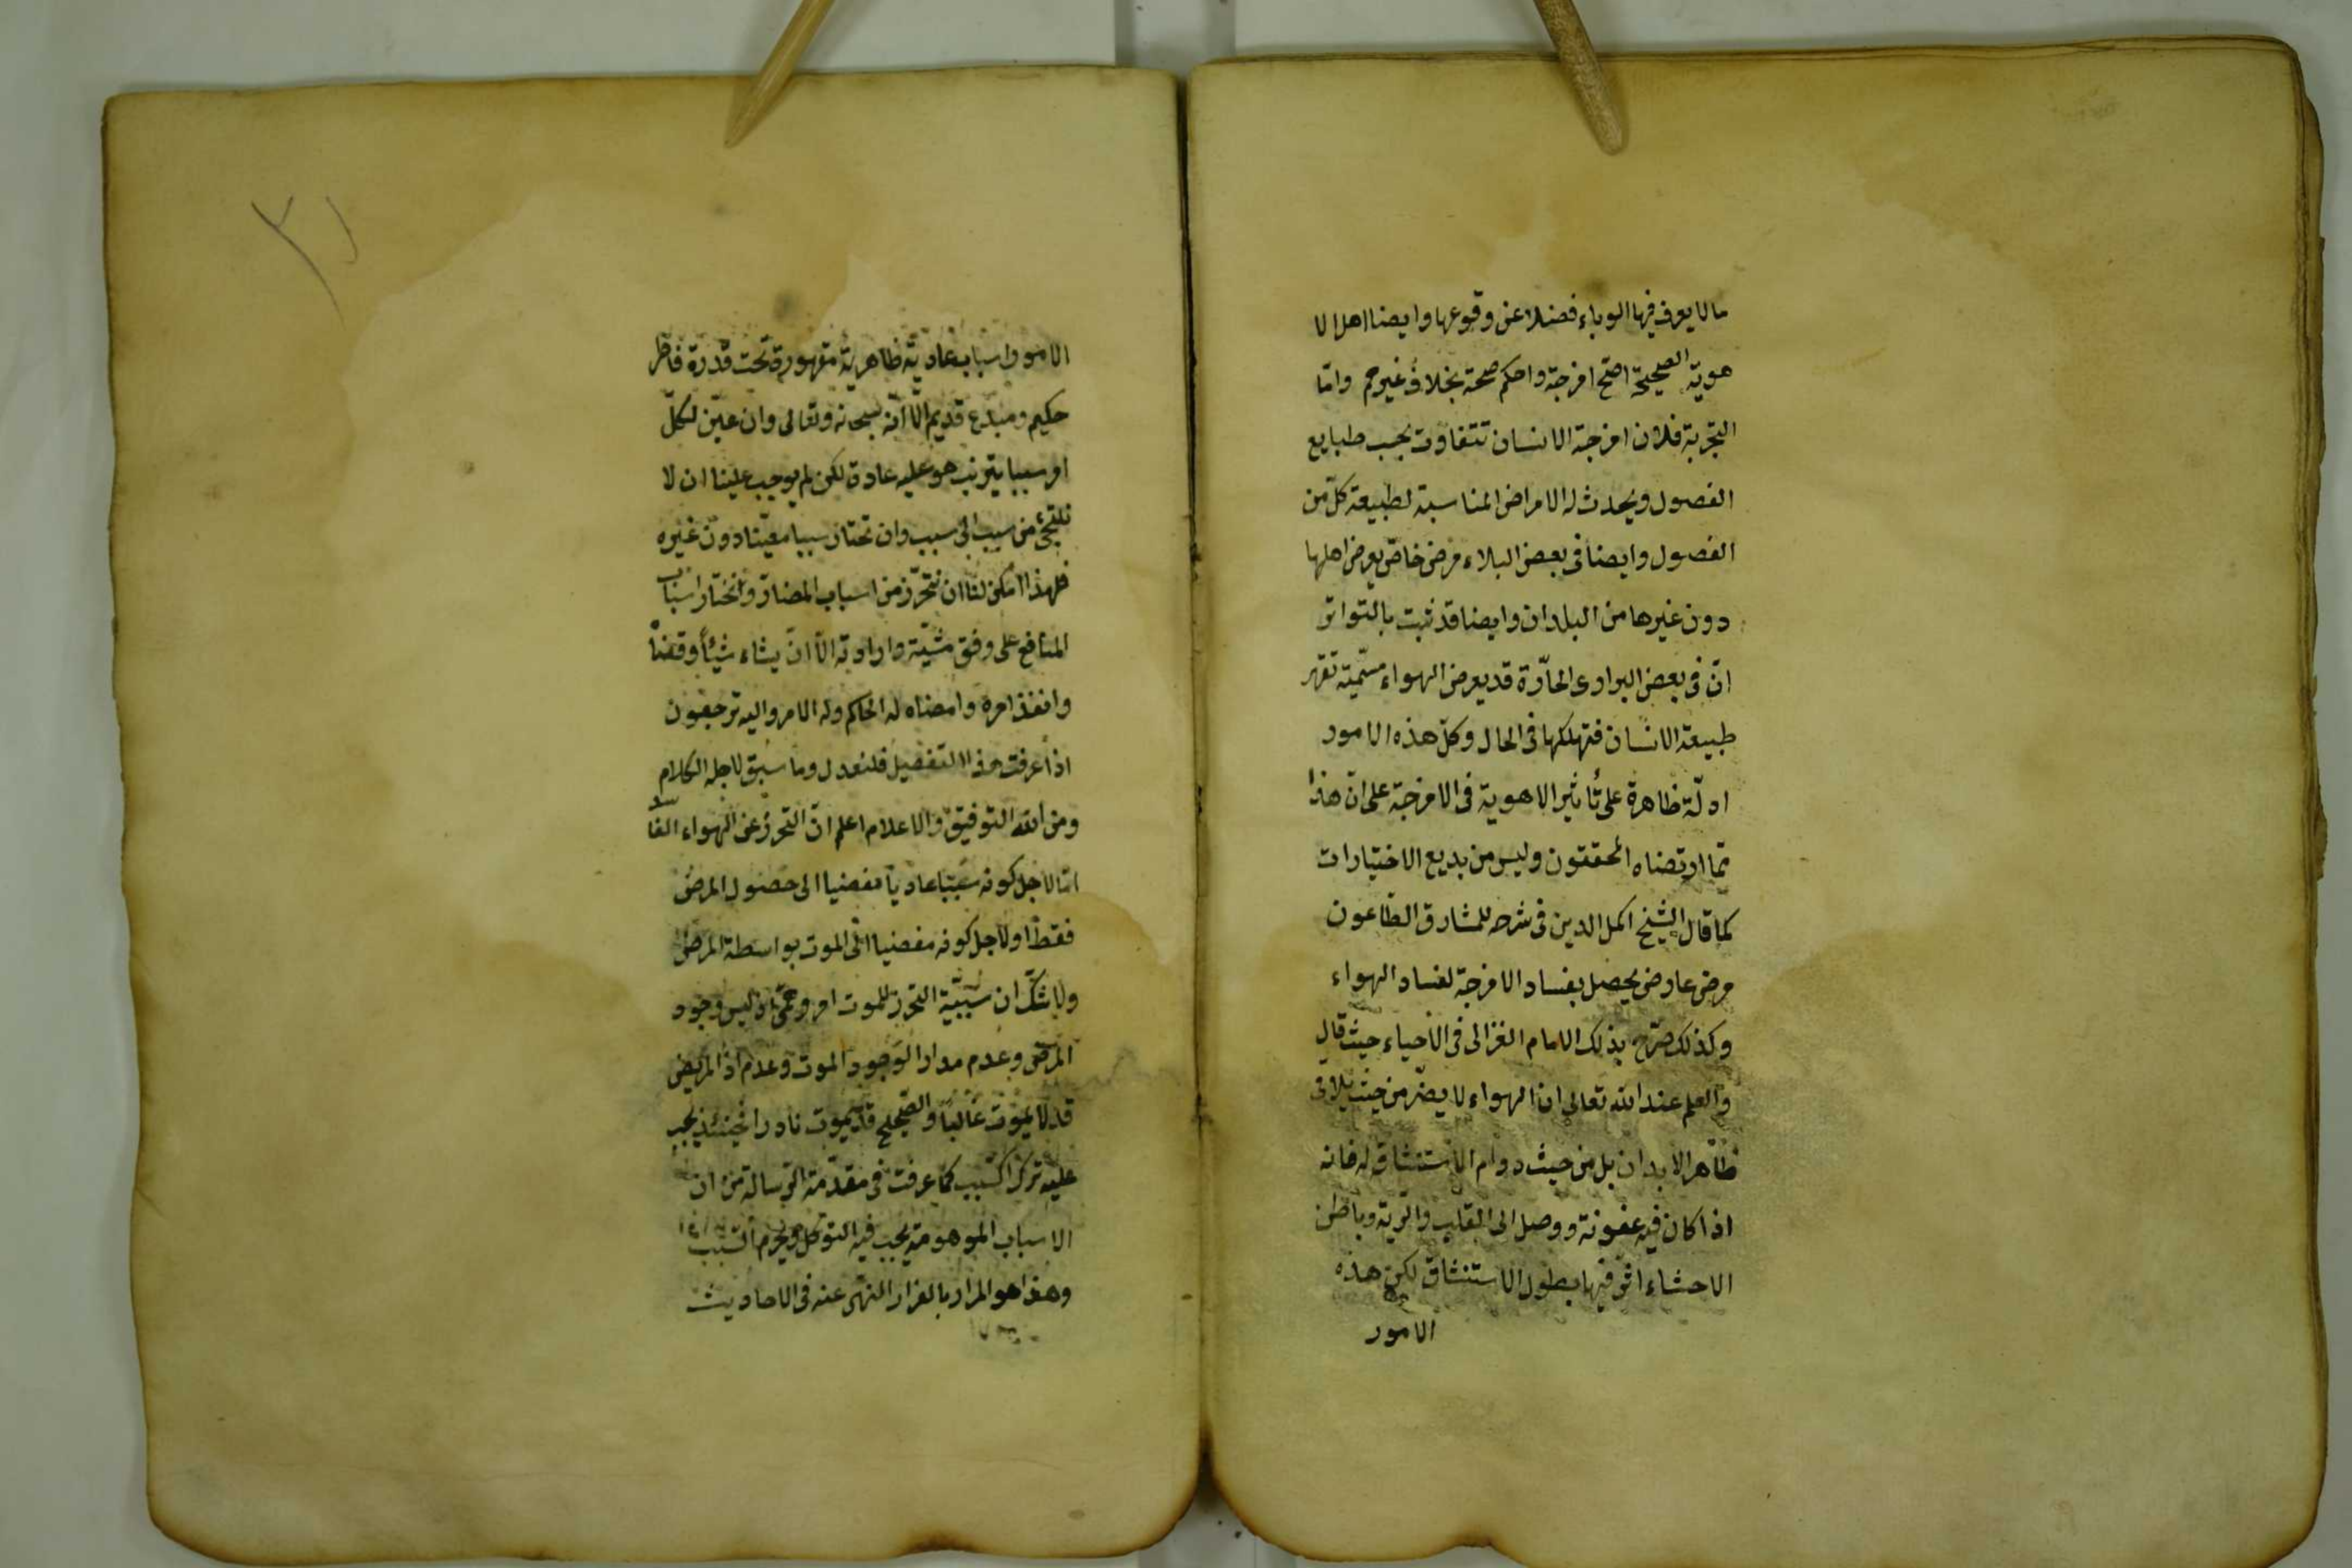 ما لا يعرف فيها الوباء فضلا عن وقوعها وايضا اهل الا
هوية الصحيحة اصح امزجة واحكم صحة بخلاف غيرهم واما
التجربة فلان امزجة الانسان تتفاوت بحسب طبايع
الفصول ويحدث له الامراض المناسبة لطبيعة كل من
الفصول وايضا فى بعض البلاد مرض خاص يعرض اهلها
دون غيرها من البلدان وايضا قد ثبت بالتواتر
ان فى بعض البوادى الحارّة قد يعرض الهواء سمّية تقهر
طبيعة الانسان فتهلكها فى الحال وكل هذه الامور
ادلّة ظاهرة على تأثير الاهوية فى الامزجة على ان هذا
مما ارتضاه المحققون وليس من بديع الاختيارات
كما قال الشيخ اكمل الدين فى شرحه للمشارق الطاعون
مرض عارض يحصل بفساد الامزجة لفساد الهواء
وكذلك صرّح بذلك الامام الغزالى فى الاحياء حيث قال
والعلم عند الله تعالى ان الهواء لا يضرّ من حيث يلاقى
ظاهر الابدان بل من حيث دوام الاستنشاق له فانه
اذا كان فيه عفونة ووصل الى القلب والرية وباطن
الاحشاء اثر فيها بطول الاستنشاق لكن هذه
الامور
٣١
الامور اسباب عادية ظاهرية مقهورة تحت قدرة فاطر
حكيم ومبدع قديم الّا انّه سبحانه وتعالى وان عيّن لكلّ
امر سببا يترتب هو عليه عادة لكن لم يوجب علينا ان لا
نلتجئ من سبب الى سبب وان نختار سببا معيّنا دون غيره
فلهذا امكن لنا ان نتحرّز من اسباب المضارّ ونختار اسباب
المنافع على وفق مشيّته وارادته الّا ان يشاء شيئاً وقضا
وانفذ امره وامضاه له الحكم وله الامر واليه ترجعون
اذا عرفت هذا التفصيل فلنعد ل وما سبق لاجله الكلام
ومن الله التوفيق والاعلام اعلم ان التحرّز عن الهواء الفاسد
امّا لاجل كونه سببا عاديا مفضيا الى حصول المرض
فقط او لاجل كونه مفضيا الى الموت بواسطة المرض
ولا شك ان سببيّة التحرز للموت امر وهمىّ اذ ليس وجود
المرض وعدم مدارا لوجود الموت وعدم اذ المريض
قد لا يموت غالباً والصحيح قد يموت نادرا فحينئذ يجب
عليه ترك السبب كما عرفت فى مقدّمة الرسالة من ان
الاسباب الموهومة يجب فيه التوكل ويحرم التسبب
وهذا هو المراد بالفرار النهى عنه فى الاحاديث